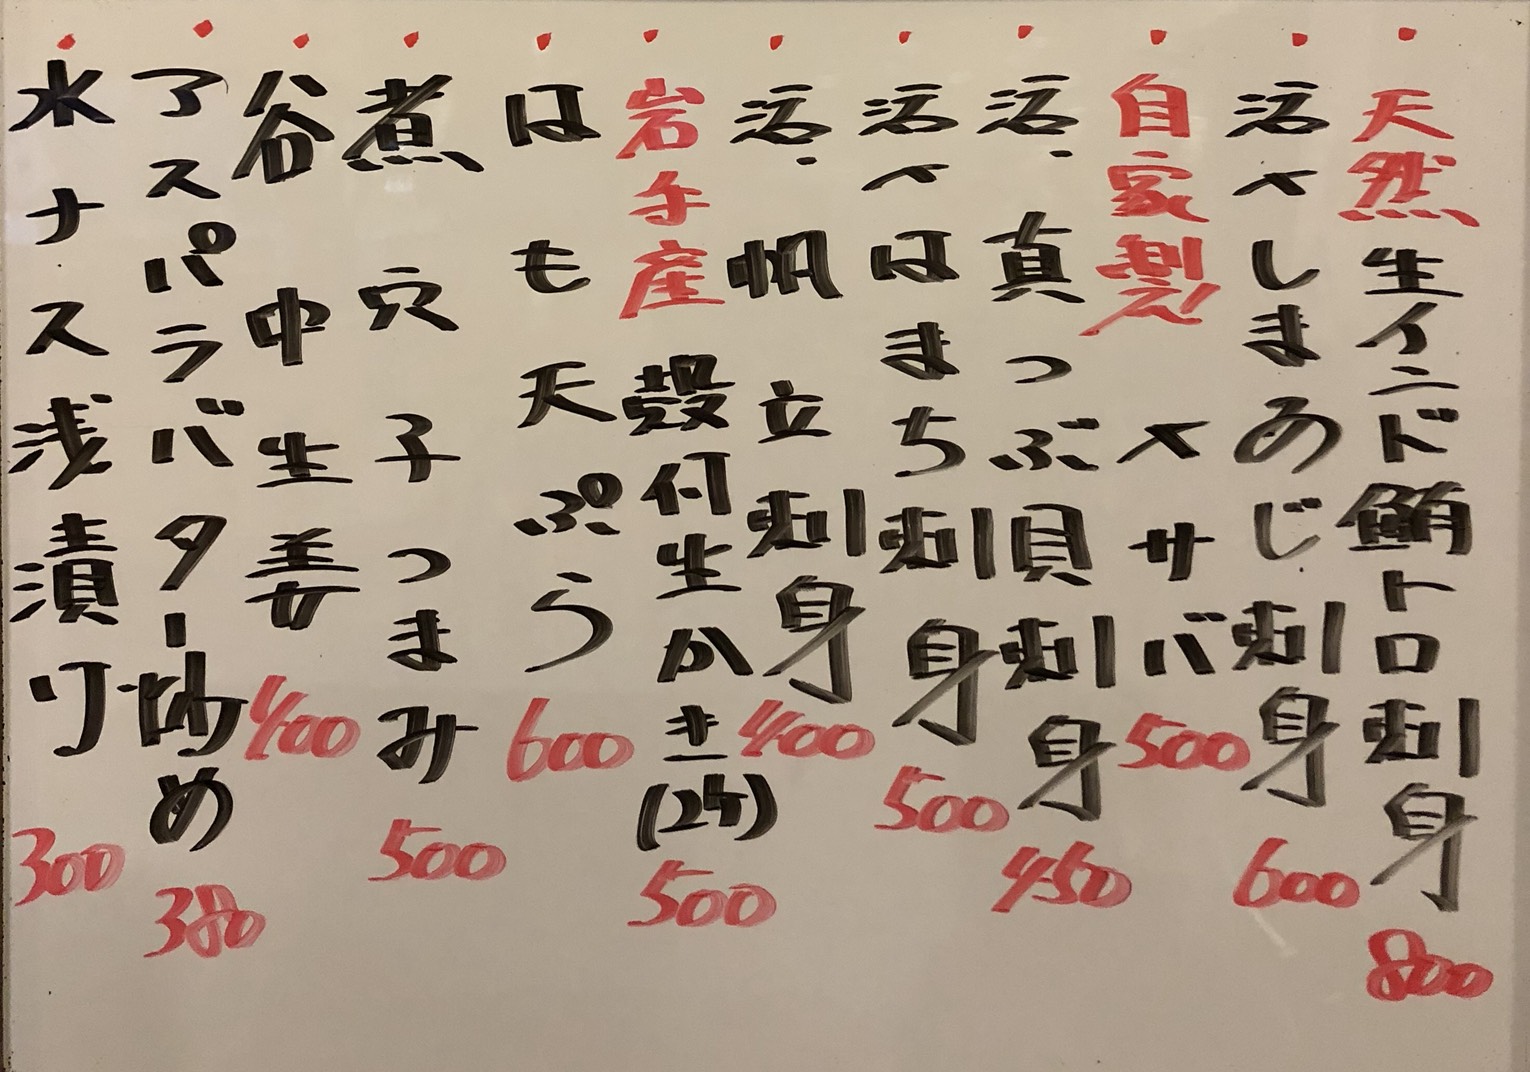 天然生インド鮪トロ刺身 800
活〆しまあじ刺身 600
自家製 〆サバ 500
活、真つぶ貝刺身 450
活〆はまち刺身 500
活、帆立刺身 400
岩手産 殻付生かき(2ケ) 500
はも天ぷら 600
煮穴子つまみ 500
谷中生姜 400
アスパラバター炒め 380
水ナス浅漬り 300